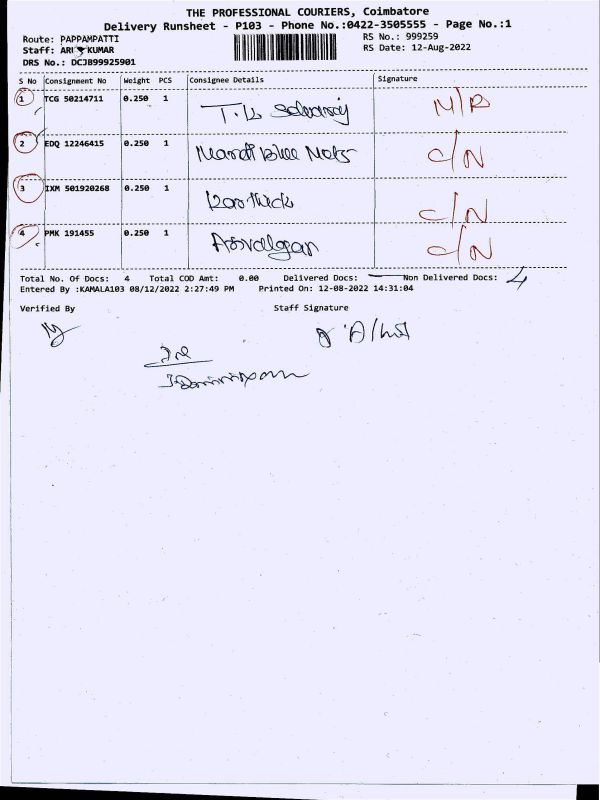 THE PROFESSIONAL COURIERS, Coimbatore
Delivery Runsheet - P103 - Phone No.:0422-3505555 - Page No.:1
Route: PAPPAMPATTI
RS No.: 999259
Staff: ARI KUMAR
RS Date: 12-Aug-2022
DRS No.: DCJB99925901
S No Consignment No Weight PCS Consignee Details Signature
1 TCG 50214711 0.250 1 T.K Selvaraj M/R
2 EDQ 12246415 0.250 1 C/N
3 IXM 501920268 0.250 1 Karthick C/N
4 PMK 191455 0.250 1 C/N
Total No. Of Docs: 4 Total COD Amt: 0.00 Delivered Docs: — Non Delivered Docs: 4
Entered By :KAMALA103 08/12/2022 2:27:49 PM Printed On: 12-08-2022 14:31:04
Verified By Staff Signature